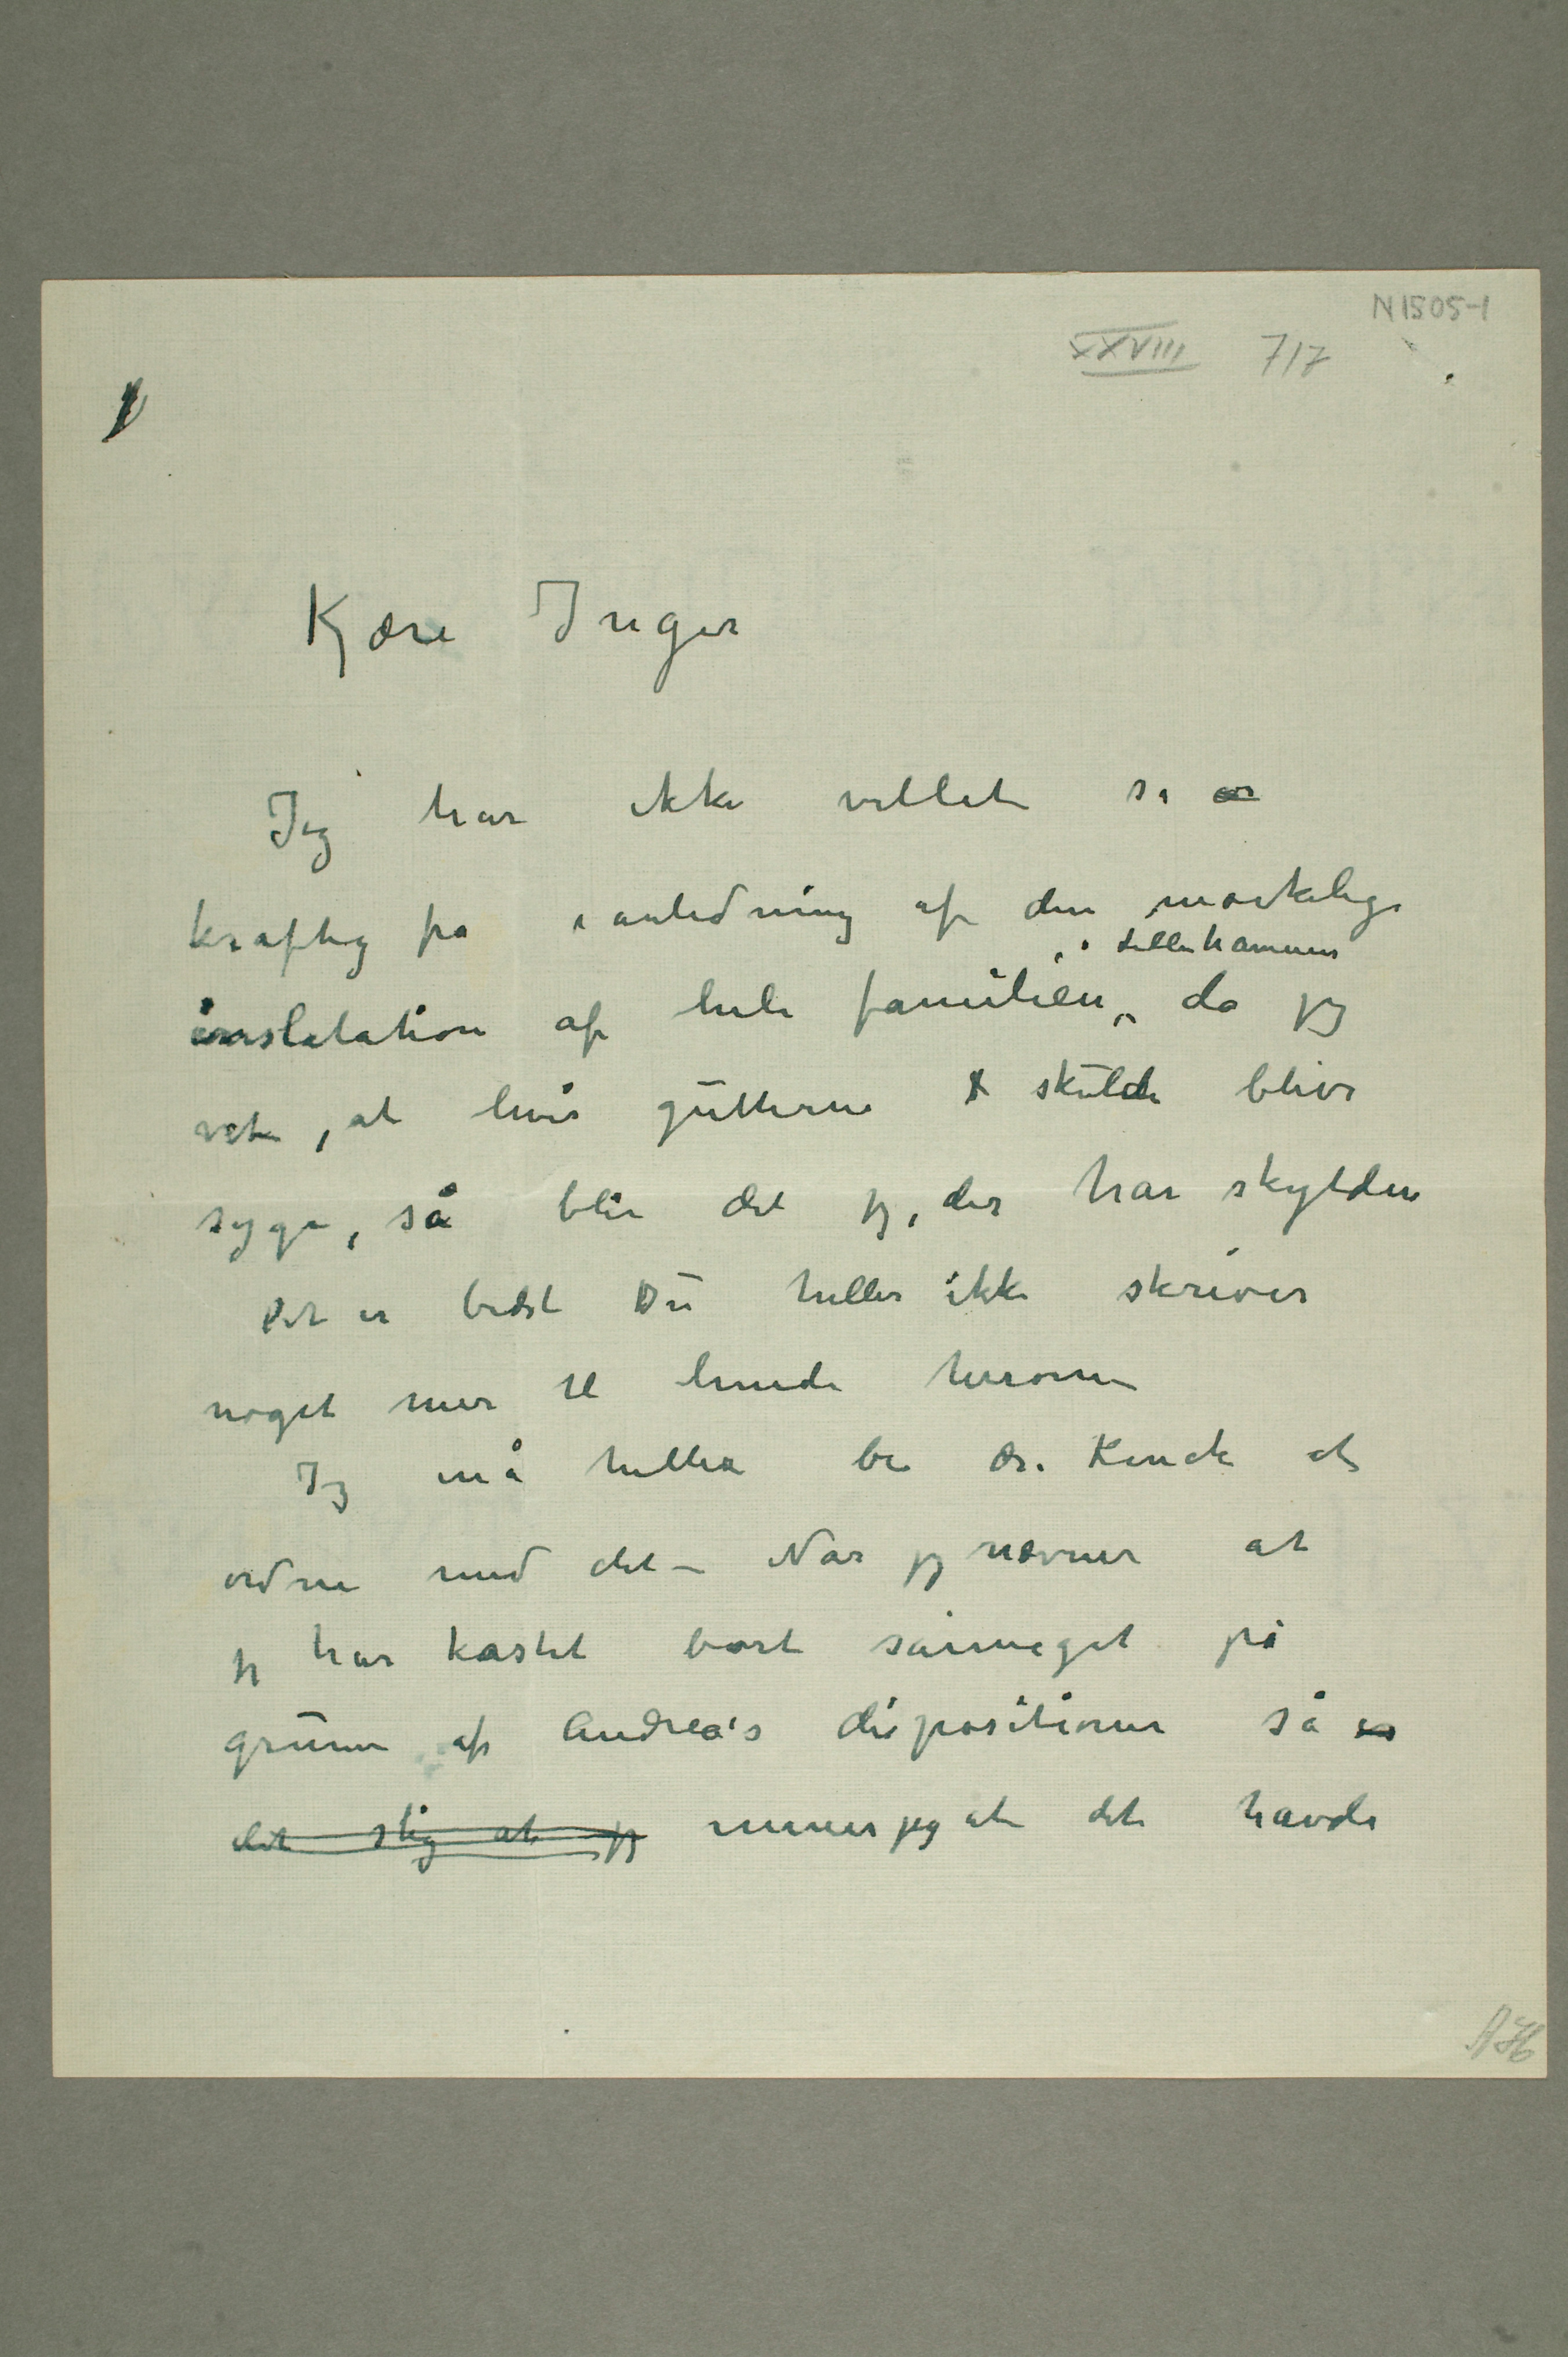 N 1505-1
XXVIII 7/7
Kjære Inger
Jeg har ikke villet si er
kraftig fra i anledning af den mærkelige
i Lillehammer
inslatation af hele familien, da jeg
vet, at hvis gutterne skulde blive
syge, så blir det jeg, der har skylden
Det er bedst Du heller ikke skriver
noget mer til hende herom
Jeg må heller be Dr. Kinck at
ordne med det – Når jeg nævner at
jeg har kastet bort såmeget på
grunn af Andrea's dispositioner så er
det slig at jeg mener jeg at det havde
AH